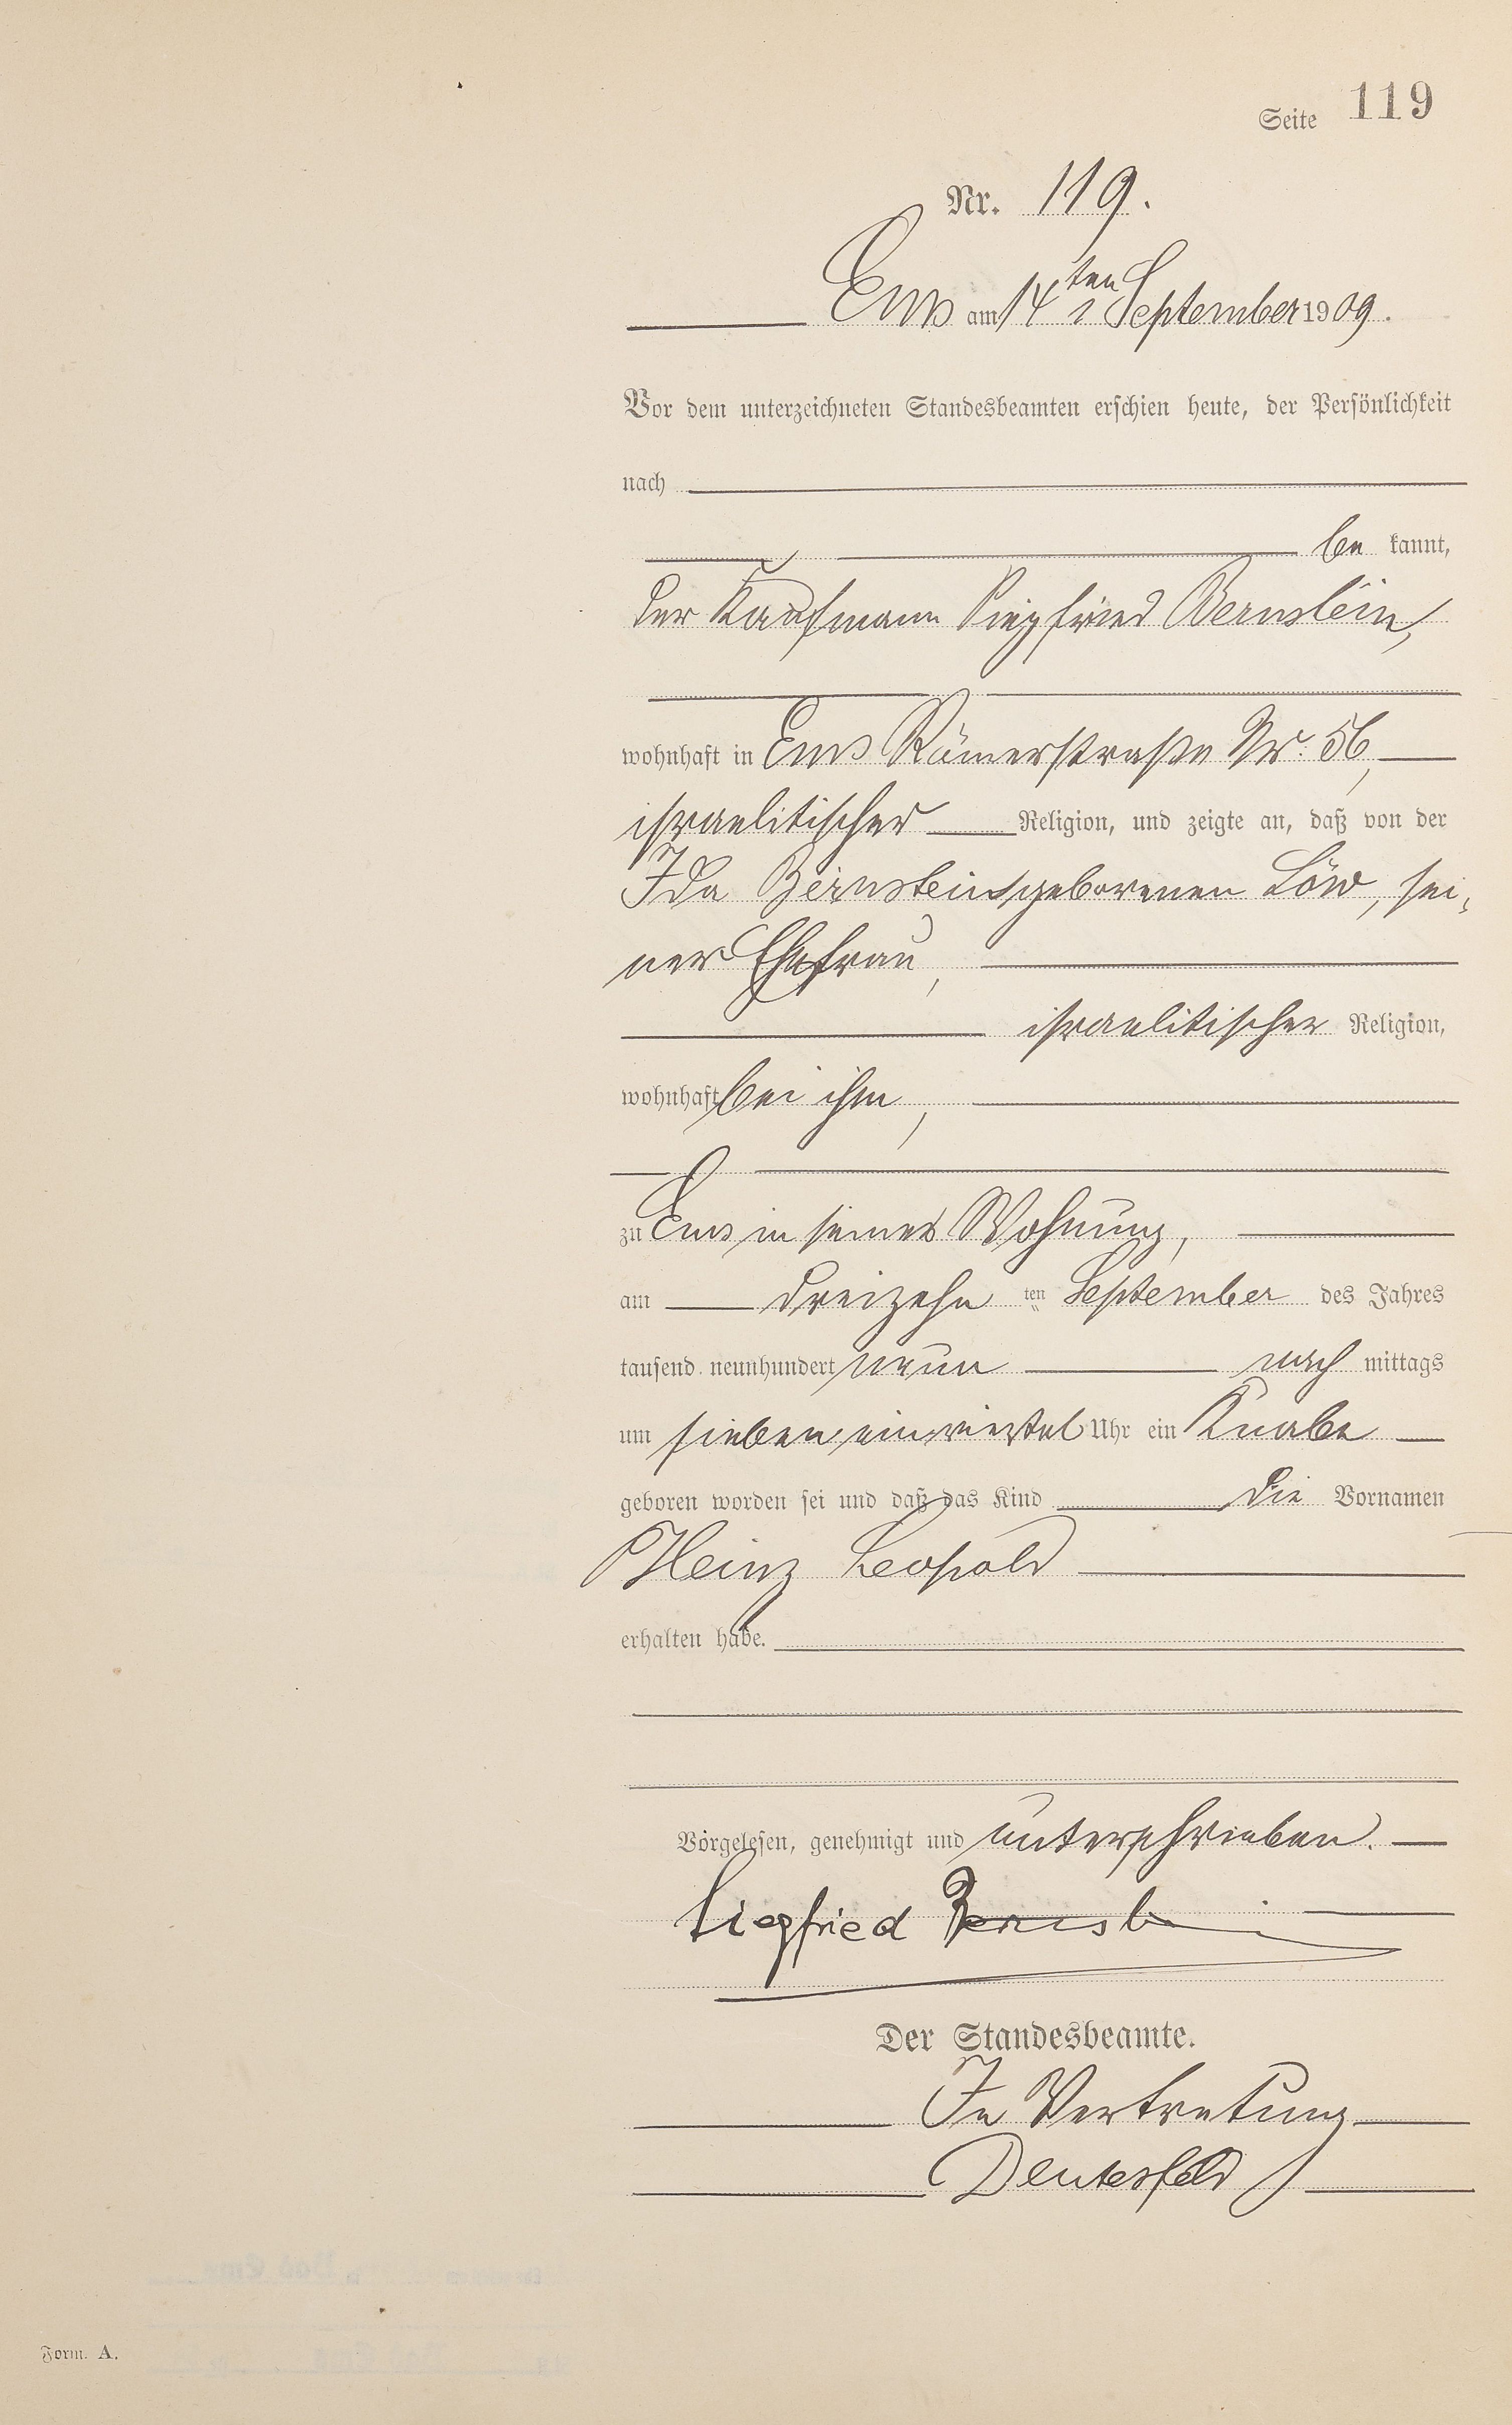 Seite 119
Nr. 119.
Ems am 14ten September 1909.
Vor dem unterzeichneten Standesbeamten erschien heute, der Persönlichkeit
nach
be kannt,
der Kaufmann Siegfried Bernstein,
wohnhaft in Ems Römerstraße Nr. 56,
israelitischer Religion, und zeigte an, daß von der
Ida Bernstein geborenen Löw, sei-
ner Ehefrau,
israelitischer Religion,
wohnhaft bei ihm,
zu Ems in seiner Wohnung,
am dreizehn ten September des Jahres
tausend neunhundert neun nach mittags
um sieben einviertel Uhr ein Knabe
geboren worden sei und daß das Kind die Vornamen
Heinz Leopold
erhalten habe.
Vorgelesen, genehmigt und unterschrieben.
Siegfried Bernstein
Der Standesbeamte.
In Vertretung
Form. A.